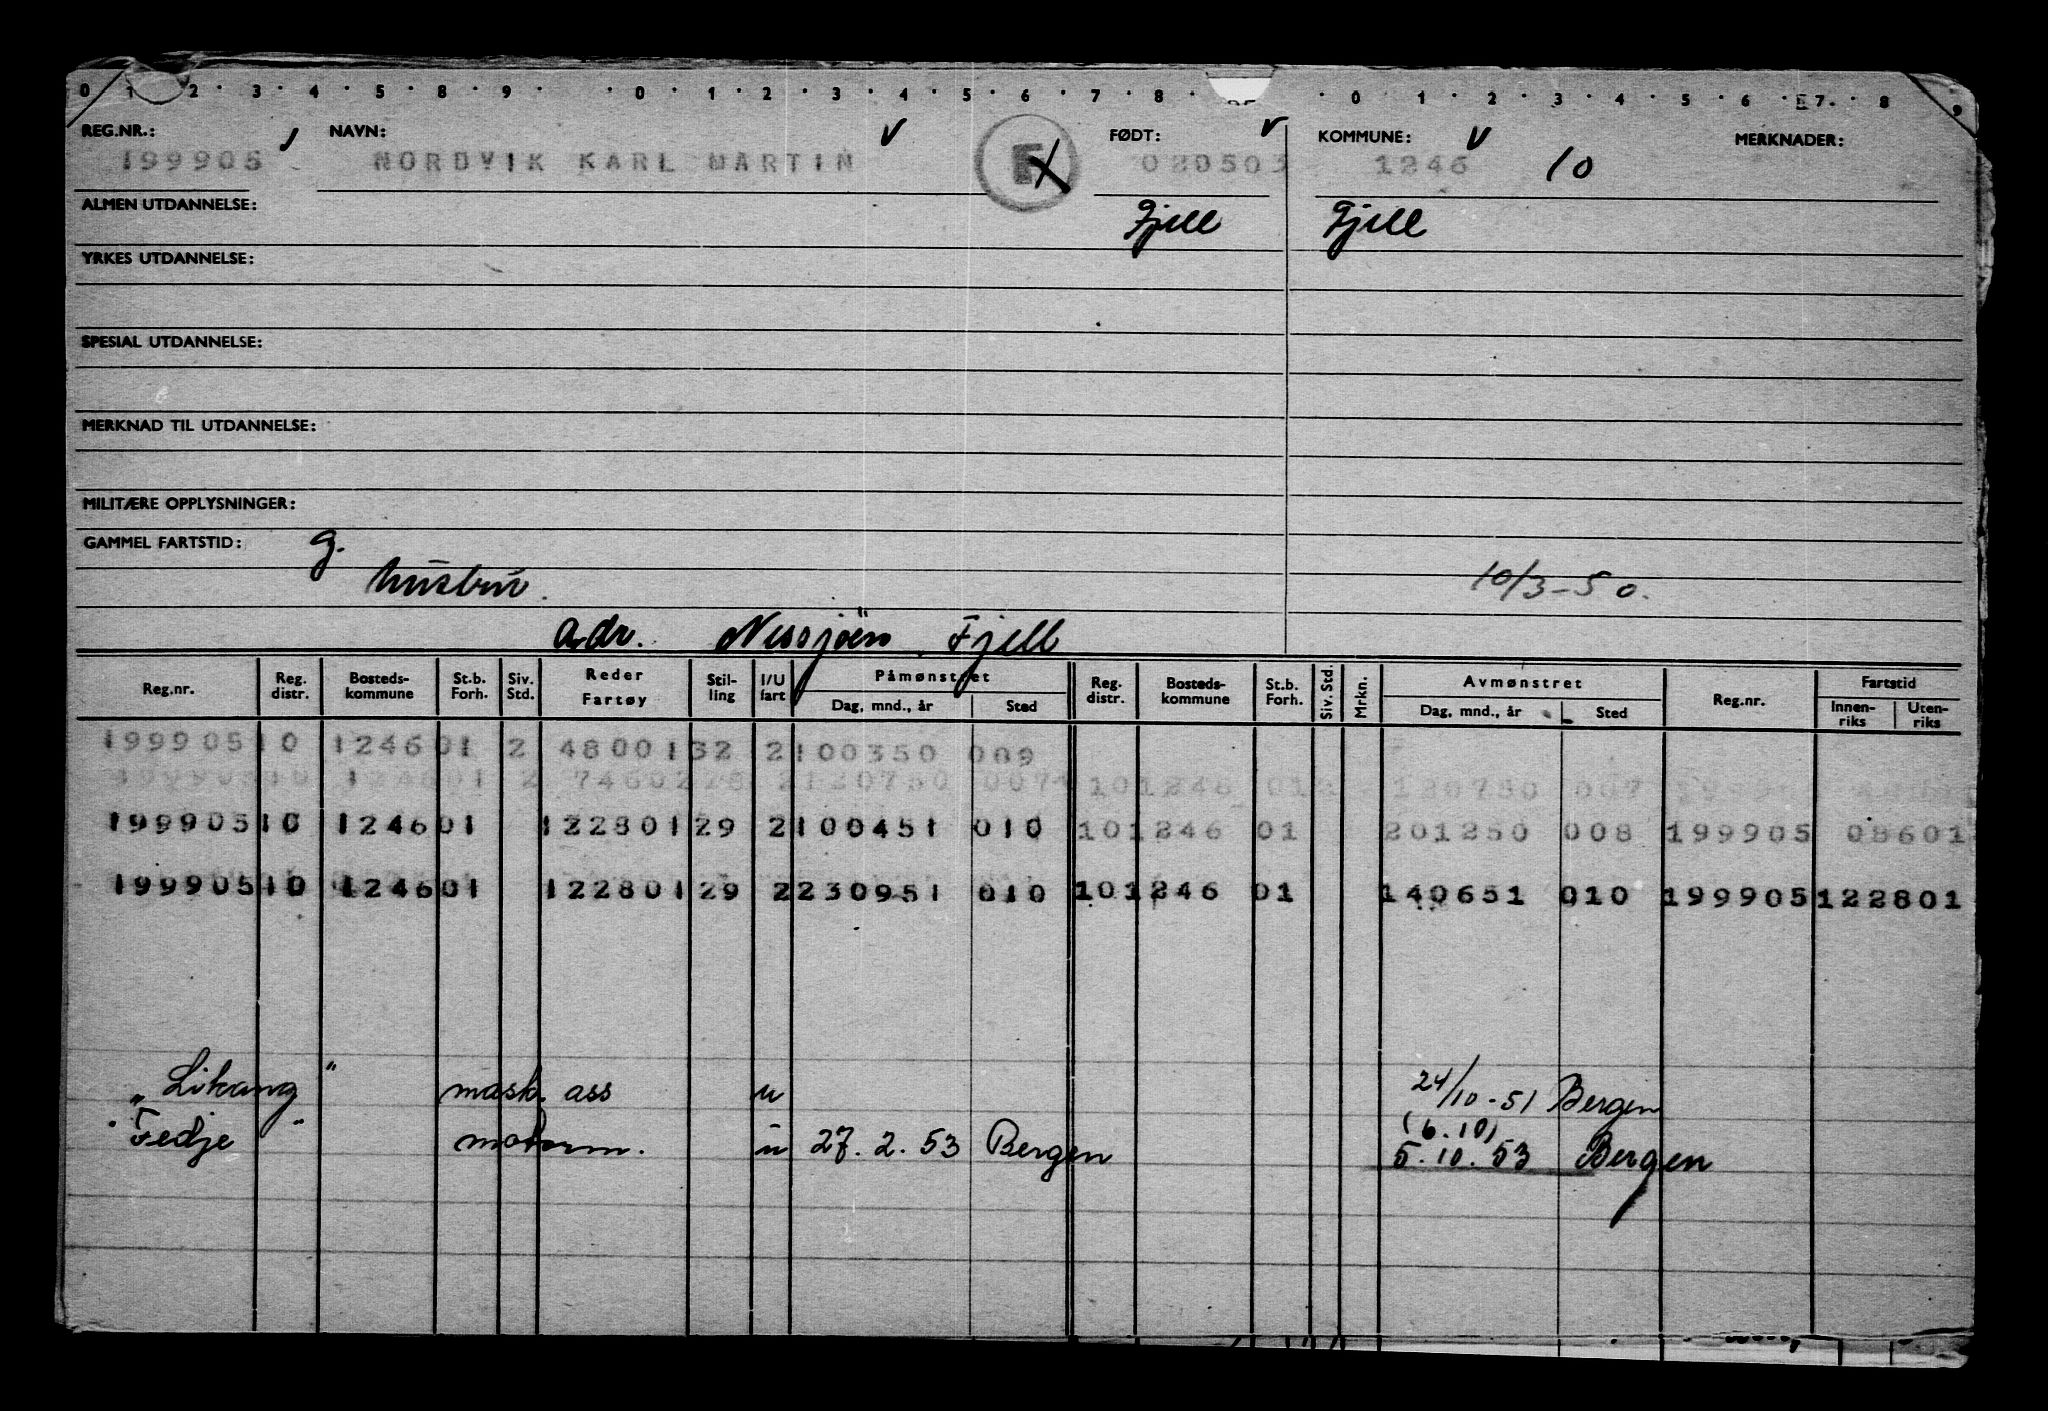 0 1 2 3 4 5 8 9 0 1 2 3 4 5 6 7 8 0 1 2 3 4 5 6 7 8 9
REG.NR.: NAVN: FØDT: KOMMUNE: MERKNADER:
199905 NORDVIK KARL MARTIN F 020503 1246 10
ALMEN UTDANNELSE: Fjell Fjell
YRKES UTDANNELSE:
SPESIAL UTDANNELSE:
MERKNAD TIL UTDANNELSE:
MILITÆRE OPPLYSNINGER:
GAMMEL FARTSTID: g.
10/3-50.
Adr. Nessjöen, Fjell
Reg.nr. Reg. distr. Bosteds-kommune St.b. Forh. Siv. Std. Reder Fartøy Stil-ling I/U fart Påmønstret Dag, mnd., år Sted Reg. distr. Bosteds-kommune St.b. Forh. Siv. Std. Mrkn. Avmønstret Dag, mnd., år Sted Reg.nr. Fartstid Innen-riks Uten-riks
199905 10 1246 01 2 48001 32 2 100350 009
199905 10 1246 01 2 74602 2 120750 007 10 1246 01 120750 007
199905 10 1246 01 12280 129 2 100451 010 10 1246 01 201250 008 199905 08601
199905 10 1246 01 12280 129 2 230951 010 10 1246 01 140651 010 199905 122801
"Likang" mask. ass u 24/10-51 Bergen
(6.10)
"Fedje" motorm. u 27.2.53 Bergen 5.10.53 Bergen